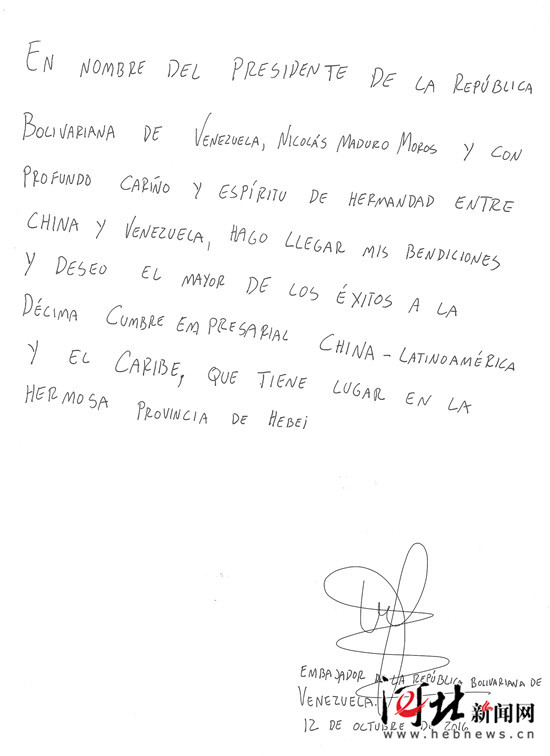 EN NOMBRE DEL PRESIDENTE DE LA REPÚBLICA
BOLIVARIANA DE VENEZUELA, NICOLÁS MADURO MOROS Y CON
PROFUNDO CARIÑO Y ESPÍRITU DE HERMANDAD ENTRE
CHINA Y VENEZUELA, HAGO LLEGAR MIS BENDICIONES
Y DESEO EL MAYOR DE LOS ÉXITOS A LA
DÉCIMA CUMBRE EMPRESARIAL CHINA-LATINOAMÉRICA
Y EL CARIBE, QUE TIENE LUGAR EN LA
HERMOSA PROVINCIA DE HEBEI
EMBAJADOR DE LA REPÚBLICA BOLIVARIANA DE
VENEZUELA.
12 DE OCTUBRE DE 2016
河北新闻网
www.hebnews.cn